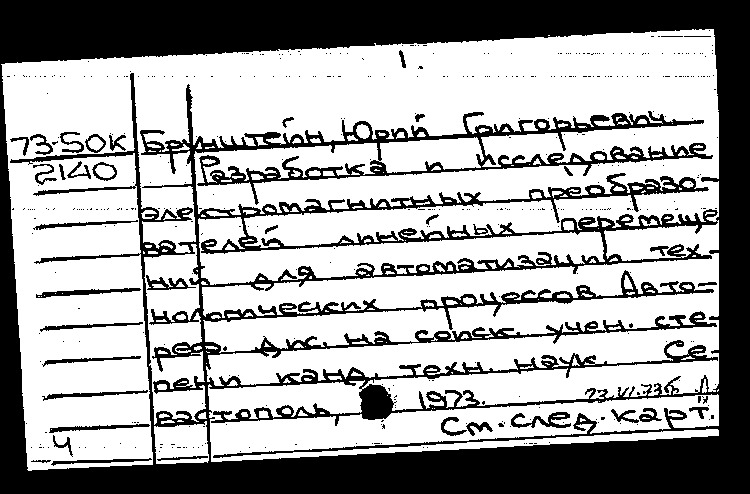 1.
73-50К Брунштейн, Юрий Григорьевич.
2140 Разработка и исследование
электромагнитных преобразо-
вателей линейных перемеще
ний для автоматизации тех-
нологических процессов. Авто-
реф. дис. на соиск. учен. сте-
пени канд. техн. наук. Се-
вастополь, 1973. 23.VI.73г.
4 См. след. карт.